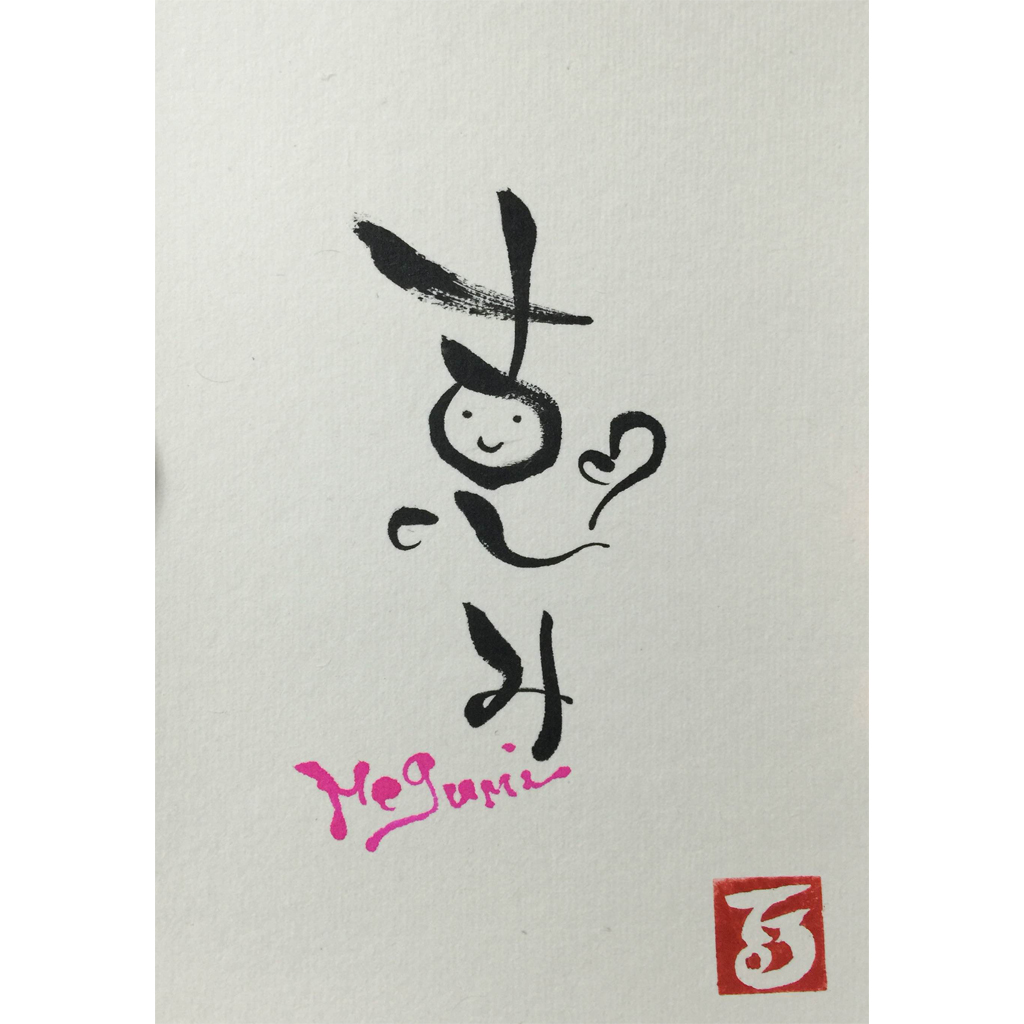 恵み
Megumi